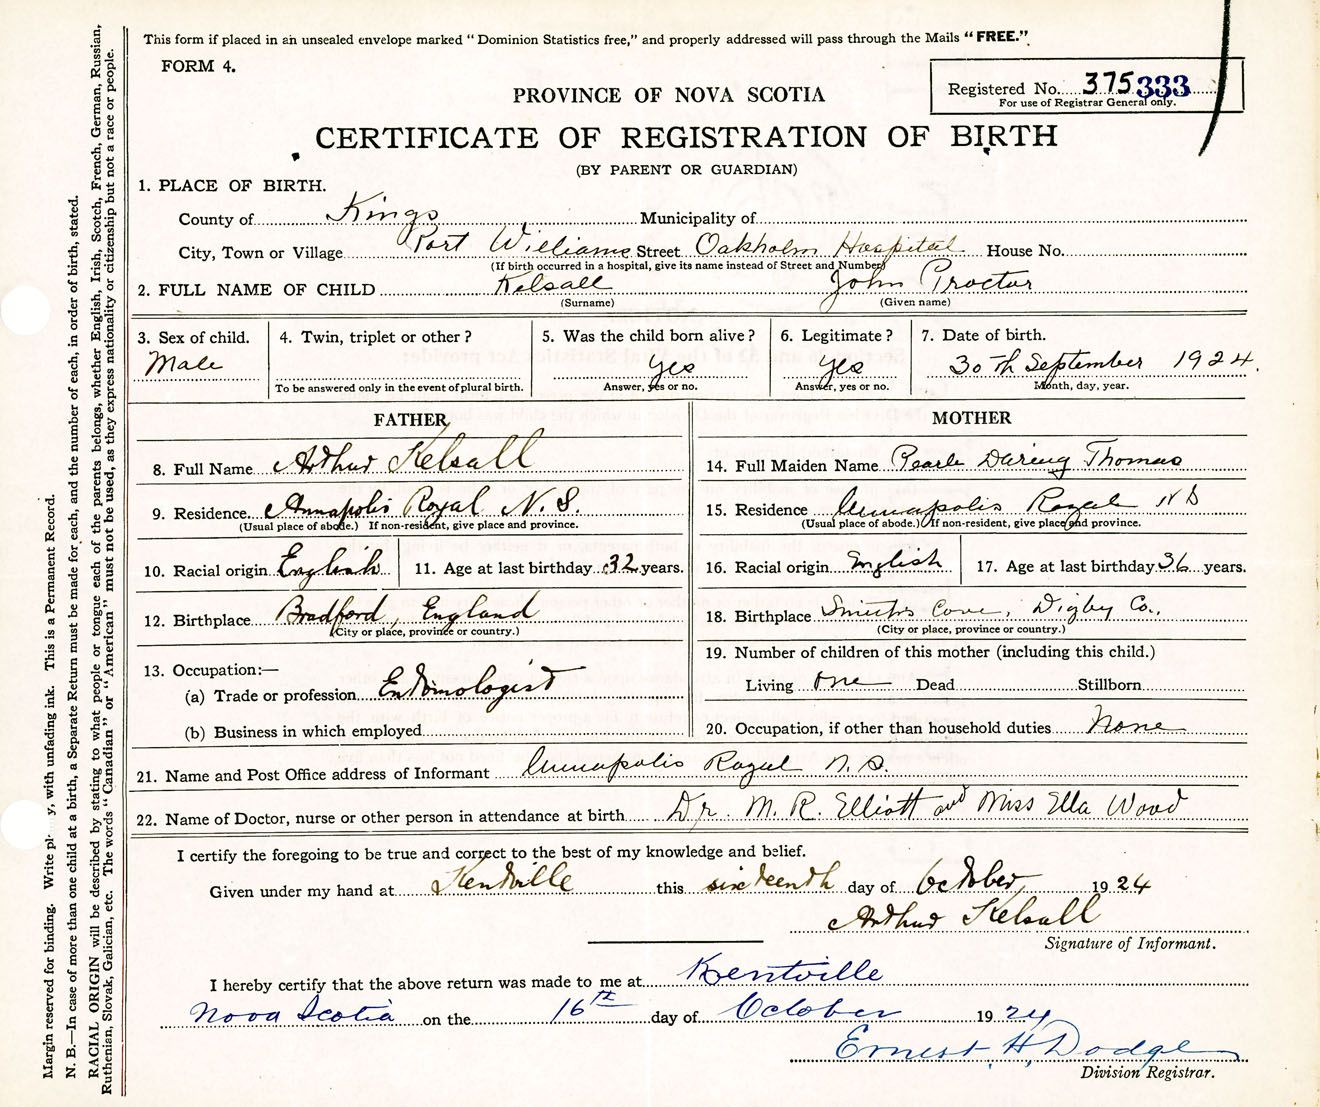 This form if placed in an unsealed envelope marked "Dominion Statistics free," and properly addressed will pass through the Mails "FREE."
FORM 4.
Registered No. 375333
For use of Registrar General only.
PROVINCE OF NOVA SCOTIA
CERTIFICATE OF REGISTRATION OF BIRTH
(BY PARENT OR GUARDIAN)
1. PLACE OF BIRTH.
County of Kings Municipality of
City, Town or Village Port Williams Street Oakholm Hospital House No.
(If birth occurred in a hospital, give its name instead of Street and Number)
2. FULL NAME OF CHILD Kelsall John Proctor
(Surname) (Given name)
3. Sex of child. 4. Twin, triplet or other? 5. Was the child born alive? 6. Legitimate? 7. Date of birth.
Male yes yes 30th September 1924.
To be answered only in the event of plural birth. Answer, yes or no. Answer, yes or no. Month, day, year.
FATHER MOTHER
8. Full Name Arthur Kelsall 14. Full Maiden Name Pearle Daring Thomas
9. Residence. Annapolis Royal N.S. 15. Residence Annapolis Royal N S
(Usual place of abode.) If non-resident, give place and province. (Usual place of abode.) If non-resident, give place and province.
10. Racial origin English 11. Age at last birthday 32 years. 16. Racial origin English 17. Age at last birthday 36 years.
12. Birthplace Bradford, England 18. Birthplace Smiths Cove, Digby Co.,
(City or place, province or country.) (City or place, province or country.)
13. Occupation:— 19. Number of children of this mother (including this child.)
(a) Trade or profession Entomologist Living one Dead Stillborn
(b) Business in which employed 20. Occupation, if other than household duties None
21. Name and Post Office address of Informant Annapolis Royal N.S.
22. Name of Doctor, nurse or other person in attendance at birth Dr. M. R. Elliott and Miss Ella Wood
I certify the foregoing to be true and correct to the best of my knowledge and belief.
Given under my hand at Kentville this sixteenth day of October, 1924
Arthur Kelsall
Signature of Informant.
I hereby certify that the above return was made to me at Kentville
Nova Scotia on the 16th day of October 1924
Ernest H. Dodge
Division Registrar.
Margin reserved for binding. Write pl y, with unfading ink. This is a Permanent Record.
N. B.—In case of more than one child at a birth, a Separate Return must be made for each, and the number of each, in order of birth, stated.
RACIAL ORIGIN will be described by stating to what people or tongue each of the parents belongs, whether English, Irish, Scotch, French, German, Russian,
Ruthenian, Slovak, Galician, etc. The words "Canadian" or "American" must not be used, as they express nationality or citizenship but not a race or people.